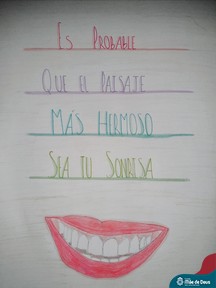 Es Probable
Que el Paisaje
Más Hermoso
Sea tu Sonrisa
Mãe de Deus